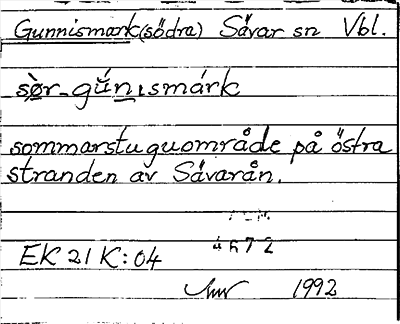 Gunnismark (södra) Sävar sn Vbl.
sø̀r-gǘnısmárk
sommarstuguområde på östra
stranden av Sävarån.
4672
EK 21 K:04
1992